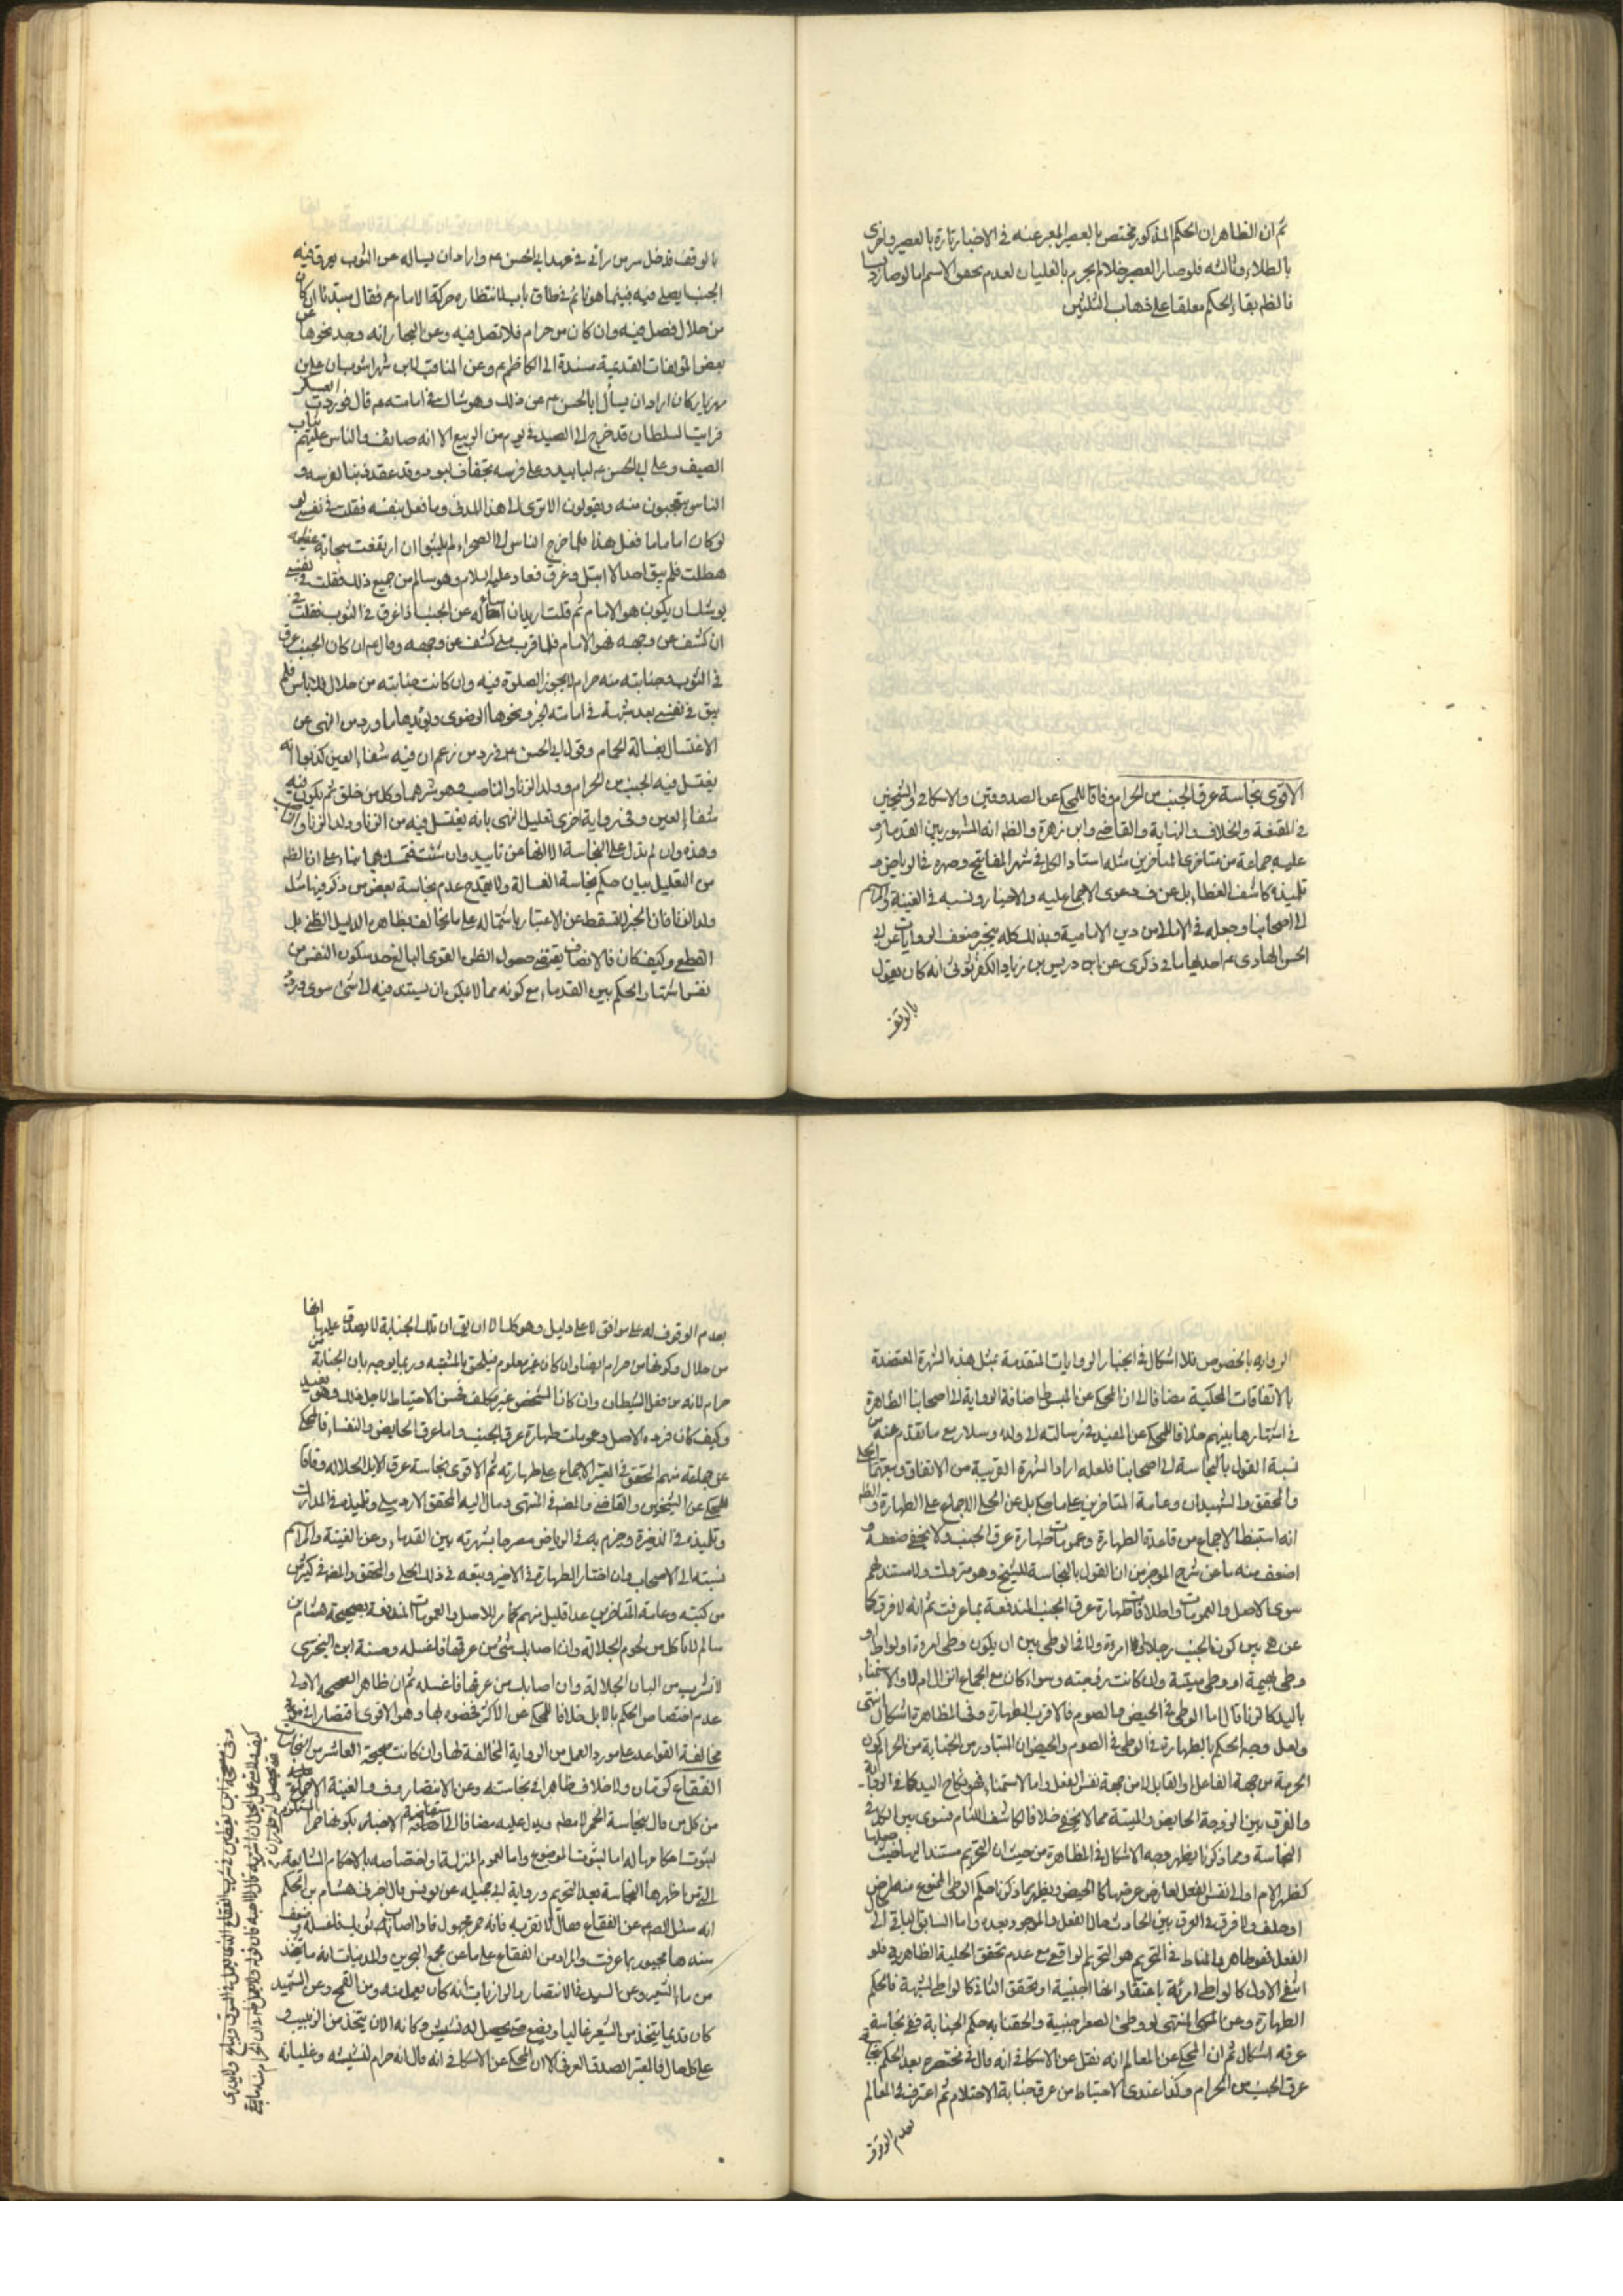 ثم ان الظاهر ان الحكم المذكور مختص بالعصير المعبر عنه في الاخبار تارة بالعصير واخرى
بالطلاء وثالثه فلو صار العصير خلا لم يحرم بالغليان لعدم تحقق الاسم اما لو صار دبسا
فالظم بقاء الحكم معلقا على ذهاب الثلثين
الاقوى نجاسة عرق الجنب من الحرام وفاقا للمحكي عن الصدوقين والاسكافي والشيخين
في المقنعة والخلاف والنهاية والقاضي وابن زهرة والظم انه المشهور بين القدماء و
عليه جماعة من متاخرى المتاخرين مثل استاد الكل في شرح المفاتيح وصهره في الرياض و
تلميذه كاشف الغطاء بل عن ف دعوى الاجماع عليه والاخبار ونسبه في الغنية والمراسم
الى اصحابنا وجعله في الامالي من دين الامامية وبذلك كله ينجبر ضعف الروايات عن ابي
الحسن الهادي عم احديها ما في ذكرى عن ادريس بن زياد الكفرثوثي انه كان يقول
بالوقف
بالوقف فدخل سر من رأى في عهد ابي الحسن عم واراد ان يساله عن الثوب يعرق فيه
الجنب ايصلى فيه فبينما هو نائم في طاق باب لانتظاره حركه الامام عم فقال مبتدئا ان كان
من حلال فصل فيه وان كان من حرام فلا تصل فيه وعن البحار انه وجد نحوها عن
بعض المؤلفات القديمة مسندة الى الكاظم عم وعن المناقب لابن شهر اشوب ان علي بن
مهزيار كان اراد ان يسأل ابا الحسن عم عن ذلك وهو شاك في امامته عم قال فوردت العسكر
فرايت السلطان قد خرج الى الصيد في يوم من الربيع الا انه صائف والناس عليهم ثياب
الصيف وعلى ابي الحسن عم لبابيد وعلى فرسه تجفاف لبود وقد عقد ذنبا لفرسه و
الناس يتعجبون منه ويقولون الا ترى الى هذا المدني وما فعل بنفسه فقلت في نفسي لو
لو كان اماما ما فعل هذا فلما خرج الناس الى الصحراء لم يلبثوا ان ارتفعت سحابة عظيمه
هطلت فلم يبق احد الا ابتل وغرق فعاد عليه السلام وهو سالم من جميع ذلك فقلت في نفسي
يوشك ان يكون هو الامام ثم قلت اريد ان اسأله عن الجنب اذا عرق في الثوب فقلت في
ان كشف عن وجهه فهو الامام فلما قرب مني كشف عن وجهه وقال عم ان كان الجنب عرق
في الثوب وجنابته منه حرام لا يجوز الصلوة فيه وان كانت جنابته من حلال فلا باس فلم
يبق في نفسي بعد شبهة في امامته الخبر ونحوها الرضوي ويؤيدها ما ورد من النهي عن
الاغتسال بغسالة الحمام وقول ابي الحسن عم في رد من زعم ان فيه شفاء العين كذبوا انه
يغتسل فيه الجنب من الحرام وولد الزنا والناصب وهو شرهما وكل من خلق ثم يكون فيه
شفاء العين وفي رواية اخرى تعليل النهي بانه يغتسل فيه من الزنا وولد الزنا والناصب
وهذه وان لم تدل على النجاسة الا انها عن تاييد وان شئت فتمسك بها بناء على ان الظم
من التعليل بيان حكم نجاسة الغسالة ولا يقدح عدم نجاسة بعض من ذكر فيها مثل
ولد الزنا فان الخبر لا يسقط عن الاعتبار باشتماله على ما يخالف بظاهره الدليل الظني بل
القطعي وكيف كان فالانصاف يقتضي حصول الظن القوي البالغ حد سكون النفس من
نفس اشتهار الحكم بين القدماء مع كونه مما لا يمكن ان يستند فيه الى شئ سوى ورود
الرواية بالخصوص فلا اشكال في انجبار الروايات المتقدمة بمثل هذه الشهرة المعتضدة
بالاتفاقات المحكية مضافا الى ان المحكي عن المبسوط اضافة الرواية الى اصحابنا الظاهرة
في اشتهارها بينهم خلافا للمحكي عن المفيد في رسالته الى ولده وسلار مع ما تقدم عنه من
نسبة القول بالنجاسة الى اصحابنا فلعله اراد الشهرة القريبة من الاتفاق وتبعهما الحلي
والمحقق والشهيدان وعامة المتاخرين على ما حكى بل عن الحلي الاجماع على الطهارة والظم
انه استنبط الاجماع من قاعدة الطهارة وعمومات طهارة عرق الجنب ولا يخفى ضعفه و
اضعف منه ما عن شرح الموجز من ان القول بالنجاسة للشيخ وهو متروك ولا مستند لهم
سوى الاصل والعمومات واطلاقات طهارة عرق الجنب المندفعة بما عرفت ثم انه لا فرق كما
عن هى بين كون الجنب رجلا او امراة ولا في الوطى بين ان يكون وطى امراة او لواط او
وطى بهيمة او وطى ميتة وان كانت زوجته وسواء كان مع الجماع انزال ام لا والاستمناء
باليد كالزنا قال اما الوطى في الحيض والصوم فالاقرب الطهارة وفي المظاهرة اشكال انتهى
ولعل وجه الحكم بالطهارة في الوطى في الصوم والحيض ان المتبادر من الجنابة من الحرام كون
الحرمة من جهة الفاعل او القابل لا من جهة نفس الفعل واما الاستمناء فهو نكاح اليد كما في الرواية
والفرق بين الزوجة الحايض والميتة مما لا يخفى خلافا لكاشف اللثام فسوى بين الكل في
النجاسة ومما ذكرنا يظهر وجه الاشكال في المظاهرة من حيث ان التحريم مستندا اليها حيث جعلها
كظهر الام او الى نفس الفعل لعارض عرضها كالحيض ويظهر مما ذكرنا حكم الوطى الممنوع منه لمرض
او حلف ولا فرق في العرق بين الحادث حال الفعل والموجود بعده واما السابق الباقي الى حال
الفعل فهو طاهر والمناط في التحريم هو التحريم الواقعي مع عدم تحقق الحلية الظاهرية فلو
انتفى الاول كالواطي امرئة باعتقاد انها اجنبية او تحقق الثاني كالواطي لشبهة فالحكم
الطهارة وعن المنتهى لو وطئ الصغير اجنبية والحقنا به حكم الجنابة ففي نجاسة
عرقه اشكال ثم ان المحكي عن المعالم انه نقل عن الاسكافي انه قال في مختصره بعد الحكم بنجاسة
عرق الجنب من الحرام وكذا عندي الاحتياط من عرق جنابة الاحتلام ثم اعترف في المعالم
بعدم الوقوف
بعدم الوقوف له على موافق لا على دليل وهو كك الا ان يق ان تلك الجنابة لا يصدق عليها انها
من حلال وكونها من حرام ايضا وان كان غير معلوم فيلحق بالمشتبه وربما يوجه بان الجنابة من
حرام لانه من فعل الشيطان وان كان الشخص غير مكلف فحسن الاحتياط لاجل ذلك وهو بعيد
وكيف كان فيرده الاصل وعمومات طهارة عرق الجنب واما عرق الحايض والنفساء فالمحكي
عن جماعة منهم المحقق في المعتبر الاجماع على طهارته ثم الاقوى نجاسة عرق الابل الجلاله وفاقا
للمحكي عن الشيخين والقاضي والمصنف في المنتهى ومال اليه المحقق الاردبيلي وتلميذه في المدارك
وتلميذه في الذخيرة وجزم به في الرياض مصرحا بشهرته بين القدماء وعن الغنية والمراسم
نسبته الى الاصحاب وان اختار الطهارة في الاخير وتبعه في ذلك الحلي والمحقق والمصنف في كثير من
من كتبه وعامة المتاخرين عدا قليل منهم كما مر للاصل والعمومات المندفعة بصحيحة هشام بن
سالم لا تاكل من لحوم الجلالة وان اصابك شئ من عرقها فاغسله وحسنة ابن البخترى
لا تشرب من البان الجلالة وان اصابك من عرقها فاغسله ثم ان ظاهر الصحيحه الاولى
عدم اختصاص الحكم بالابل خلافا للمحكي عن الاكثر فخصوه بها وهو الاقوى اقتصارا في
مخالفة القواعد على مورد العمل من الرواية المخالفة لها وان كانت صحيحة العاشر من النجاسات
الفقاع كرمان ولا خلاف ظاهرا في نجاسته وعن الانتصار و ف والغنية الاجماع عليه
من كل من قال بنجاسة الخمر لا مطم ويدل عليه مضافا الى استفاضة الاخبار بكونها خمرا
لثبوت احكامها له اما لثبوت الموضوع واما لعموم المنزلة واختصاصه بالاحكام الشايعة
التي من اظهرها النجاسة بعد التحريم ورواية ابي جميله عن يونس قال اخبرني هشام بن الحكم
انه سئل الصم عن الفقاع فقال لا تقربه فانه خمر مجهول فاذا اصاب ثوبك فاغسله وضعف
سندها مجبور بما عرفت والمراد من الفقاع على ما عن مجمع البحرين والمدنيات انه ما يتخذ
من ماء الشعير وعن السيد في الانتصار والرازيات انه كان يعمل منه ومن القمح وعن الشهيد
كان قديما يتخذ من الشعير غالبا ويضع حتى يحصل له نشيش وكانه الان يتخذ من الزبيب و
على كل حال فالمعتبر الصدق العرفي الا ان المحكي عن الاسكافي انه قال انه حرام لنشيشه وغليانه